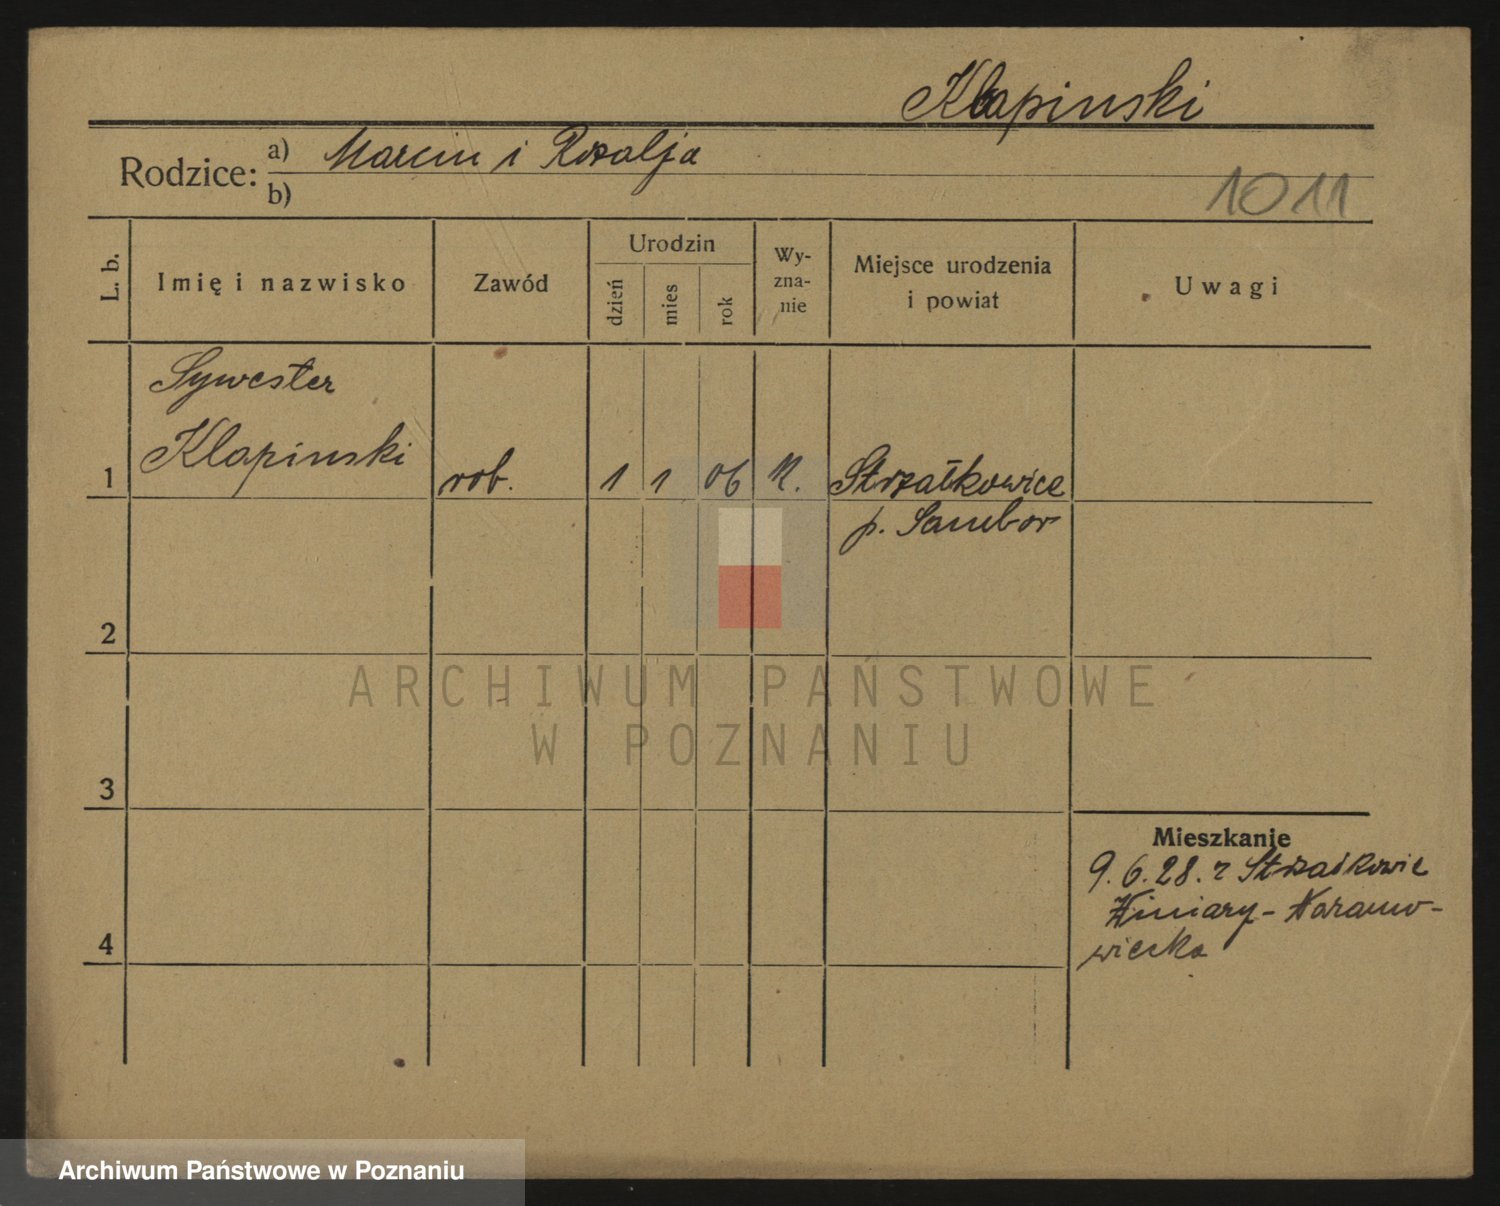 Klapinski
Rodzice: a) Marcin i Rozalja
b)
1011
L. b. Imię i nazwisko Zawód Urodzin dzień mies rok Wy-zna-nie Miejsce urodzenia i powiat Uwagi
Sywester
Klapinski
1 rob. 1 1 06 k. Strzałkowice
p. Sambor
2
3
Mieszkanie
9. 6. 28. z Strzałkowic
Winiary - Naramo-
wicka
4
ARCHIWUM PAŃSTWOWE
W POZNANIU
Archiwum Państwowe w Poznaniu